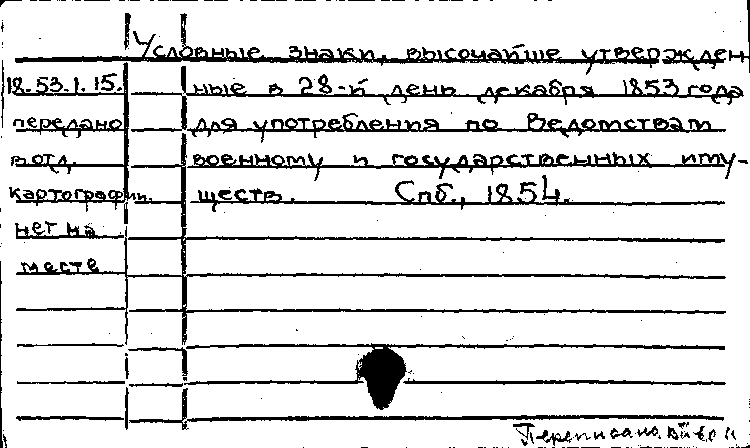 Условные знаки, высочайше утвержден-
18.53.1.15. ные в 28-й день декабря 1853 года
передано для употребления по Ведомствам
в отд. военному и государственных иму-
картографии. ществ. Спб., 1854.
нет на
месте
Переписано